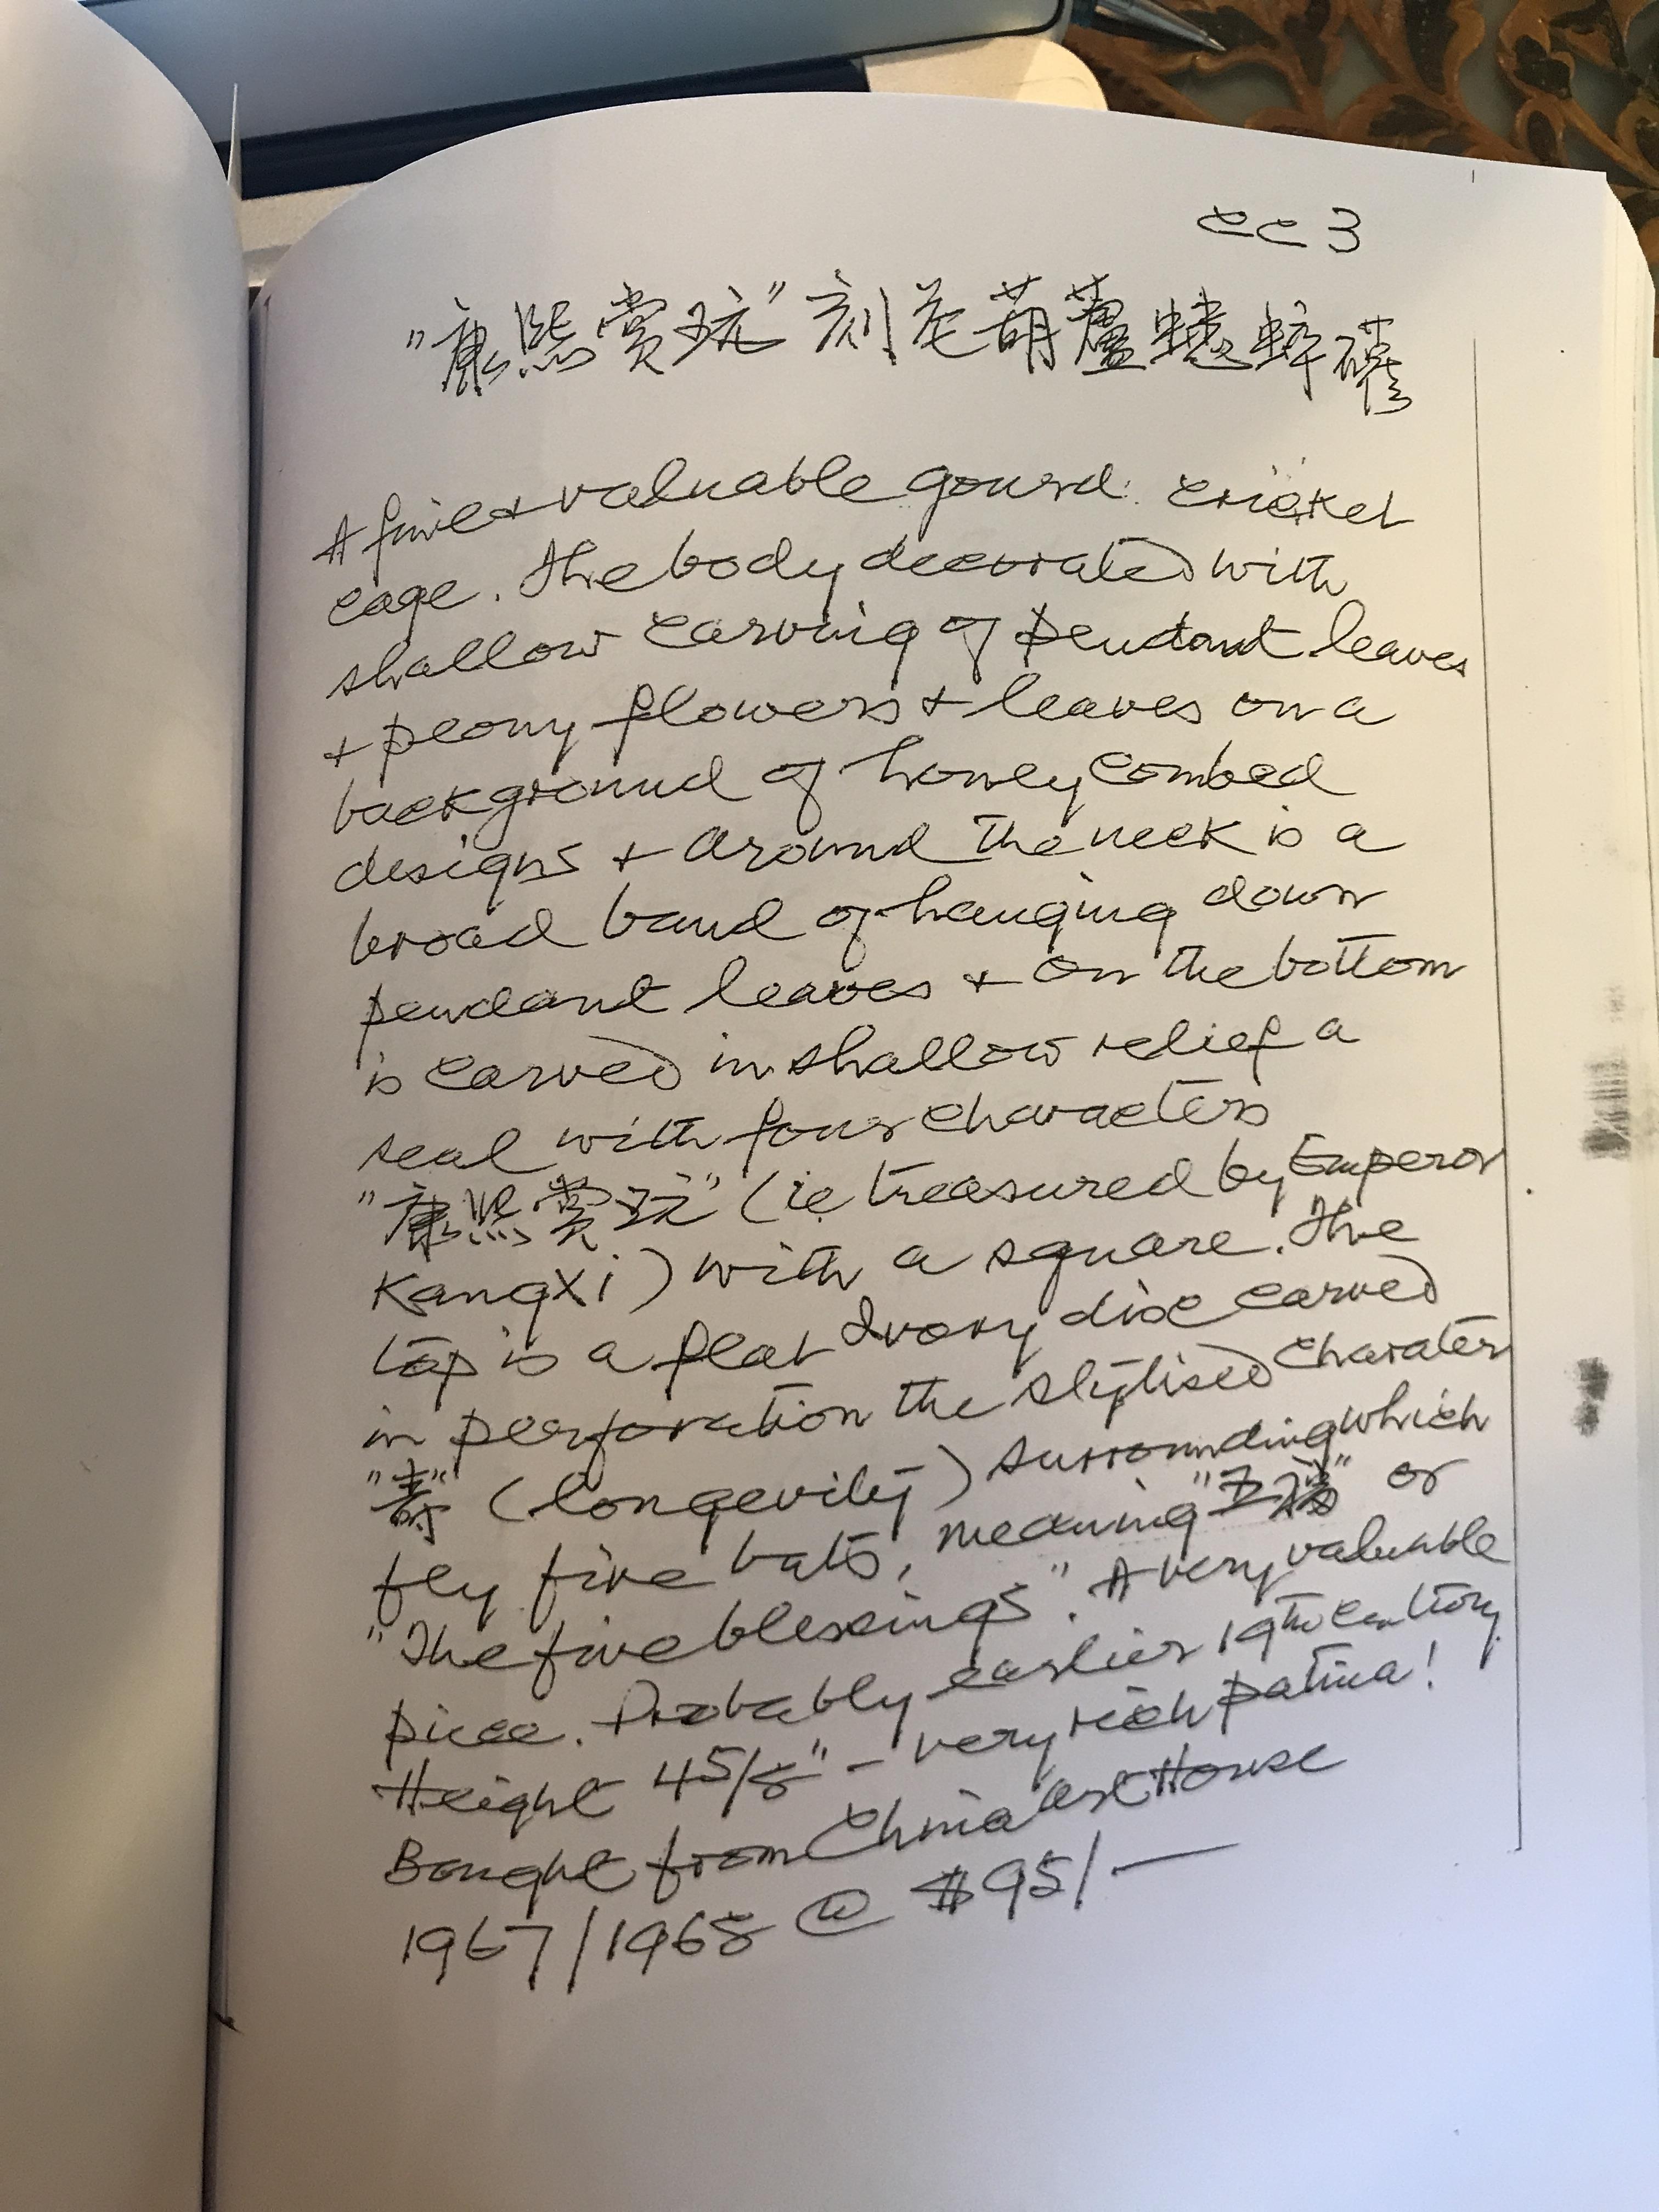 cc 3
"康熙賞玩"刻花葫蘆蟋蟀
A fine & valuable gourd cricket
cage. The body decorated with
shallow carving of pendant leaves
+ peony flowers + leaves on a
background of honey combed
designs + around the neck is a
broad band of hanging down
pendant leaves + on the bottom
is carved in shallow relief a
seal with four characters
"康熙賞玩" (ie treasured by Emperor
KangXi) with a square. The
top is a flat Ivory disc carved
in perforation the stylised charater
"壽" (longevity) surrounding which
fly five bats, meaning "五福" or
"The five blessings". A very valuable
piece. Probably earlier 19th century
Height 4 5/8" - very rich patina!
Bought from China Art House
1967/1968 @ $95/-